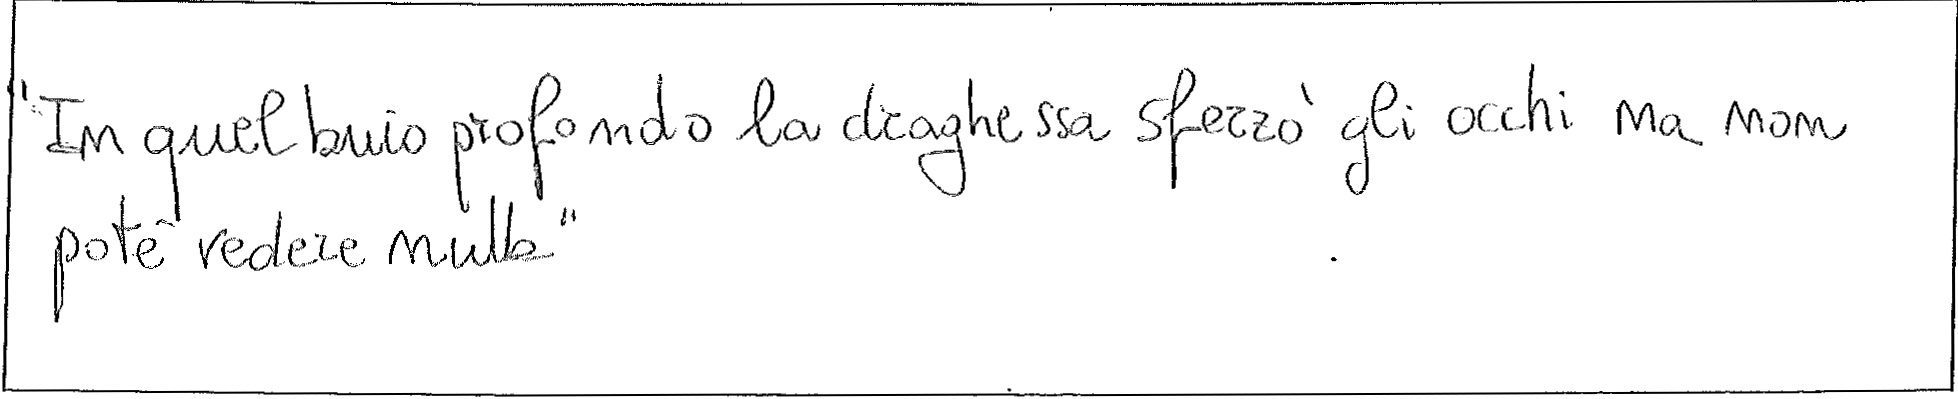 "In quel buio profondo la draghessa sferzò gli occhi ma non
potè vedere nulla"